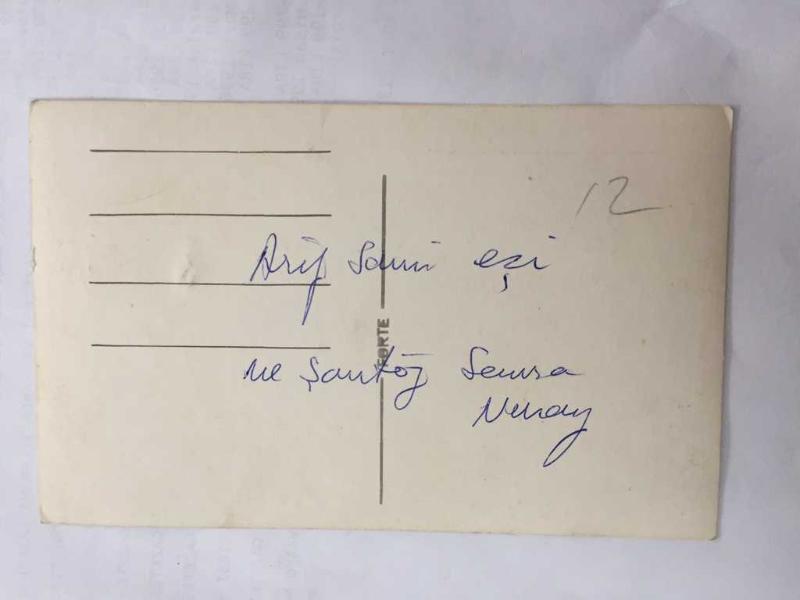 12
Arif Sami eşi
ve Şantöz Semra
Nuray
FORTE